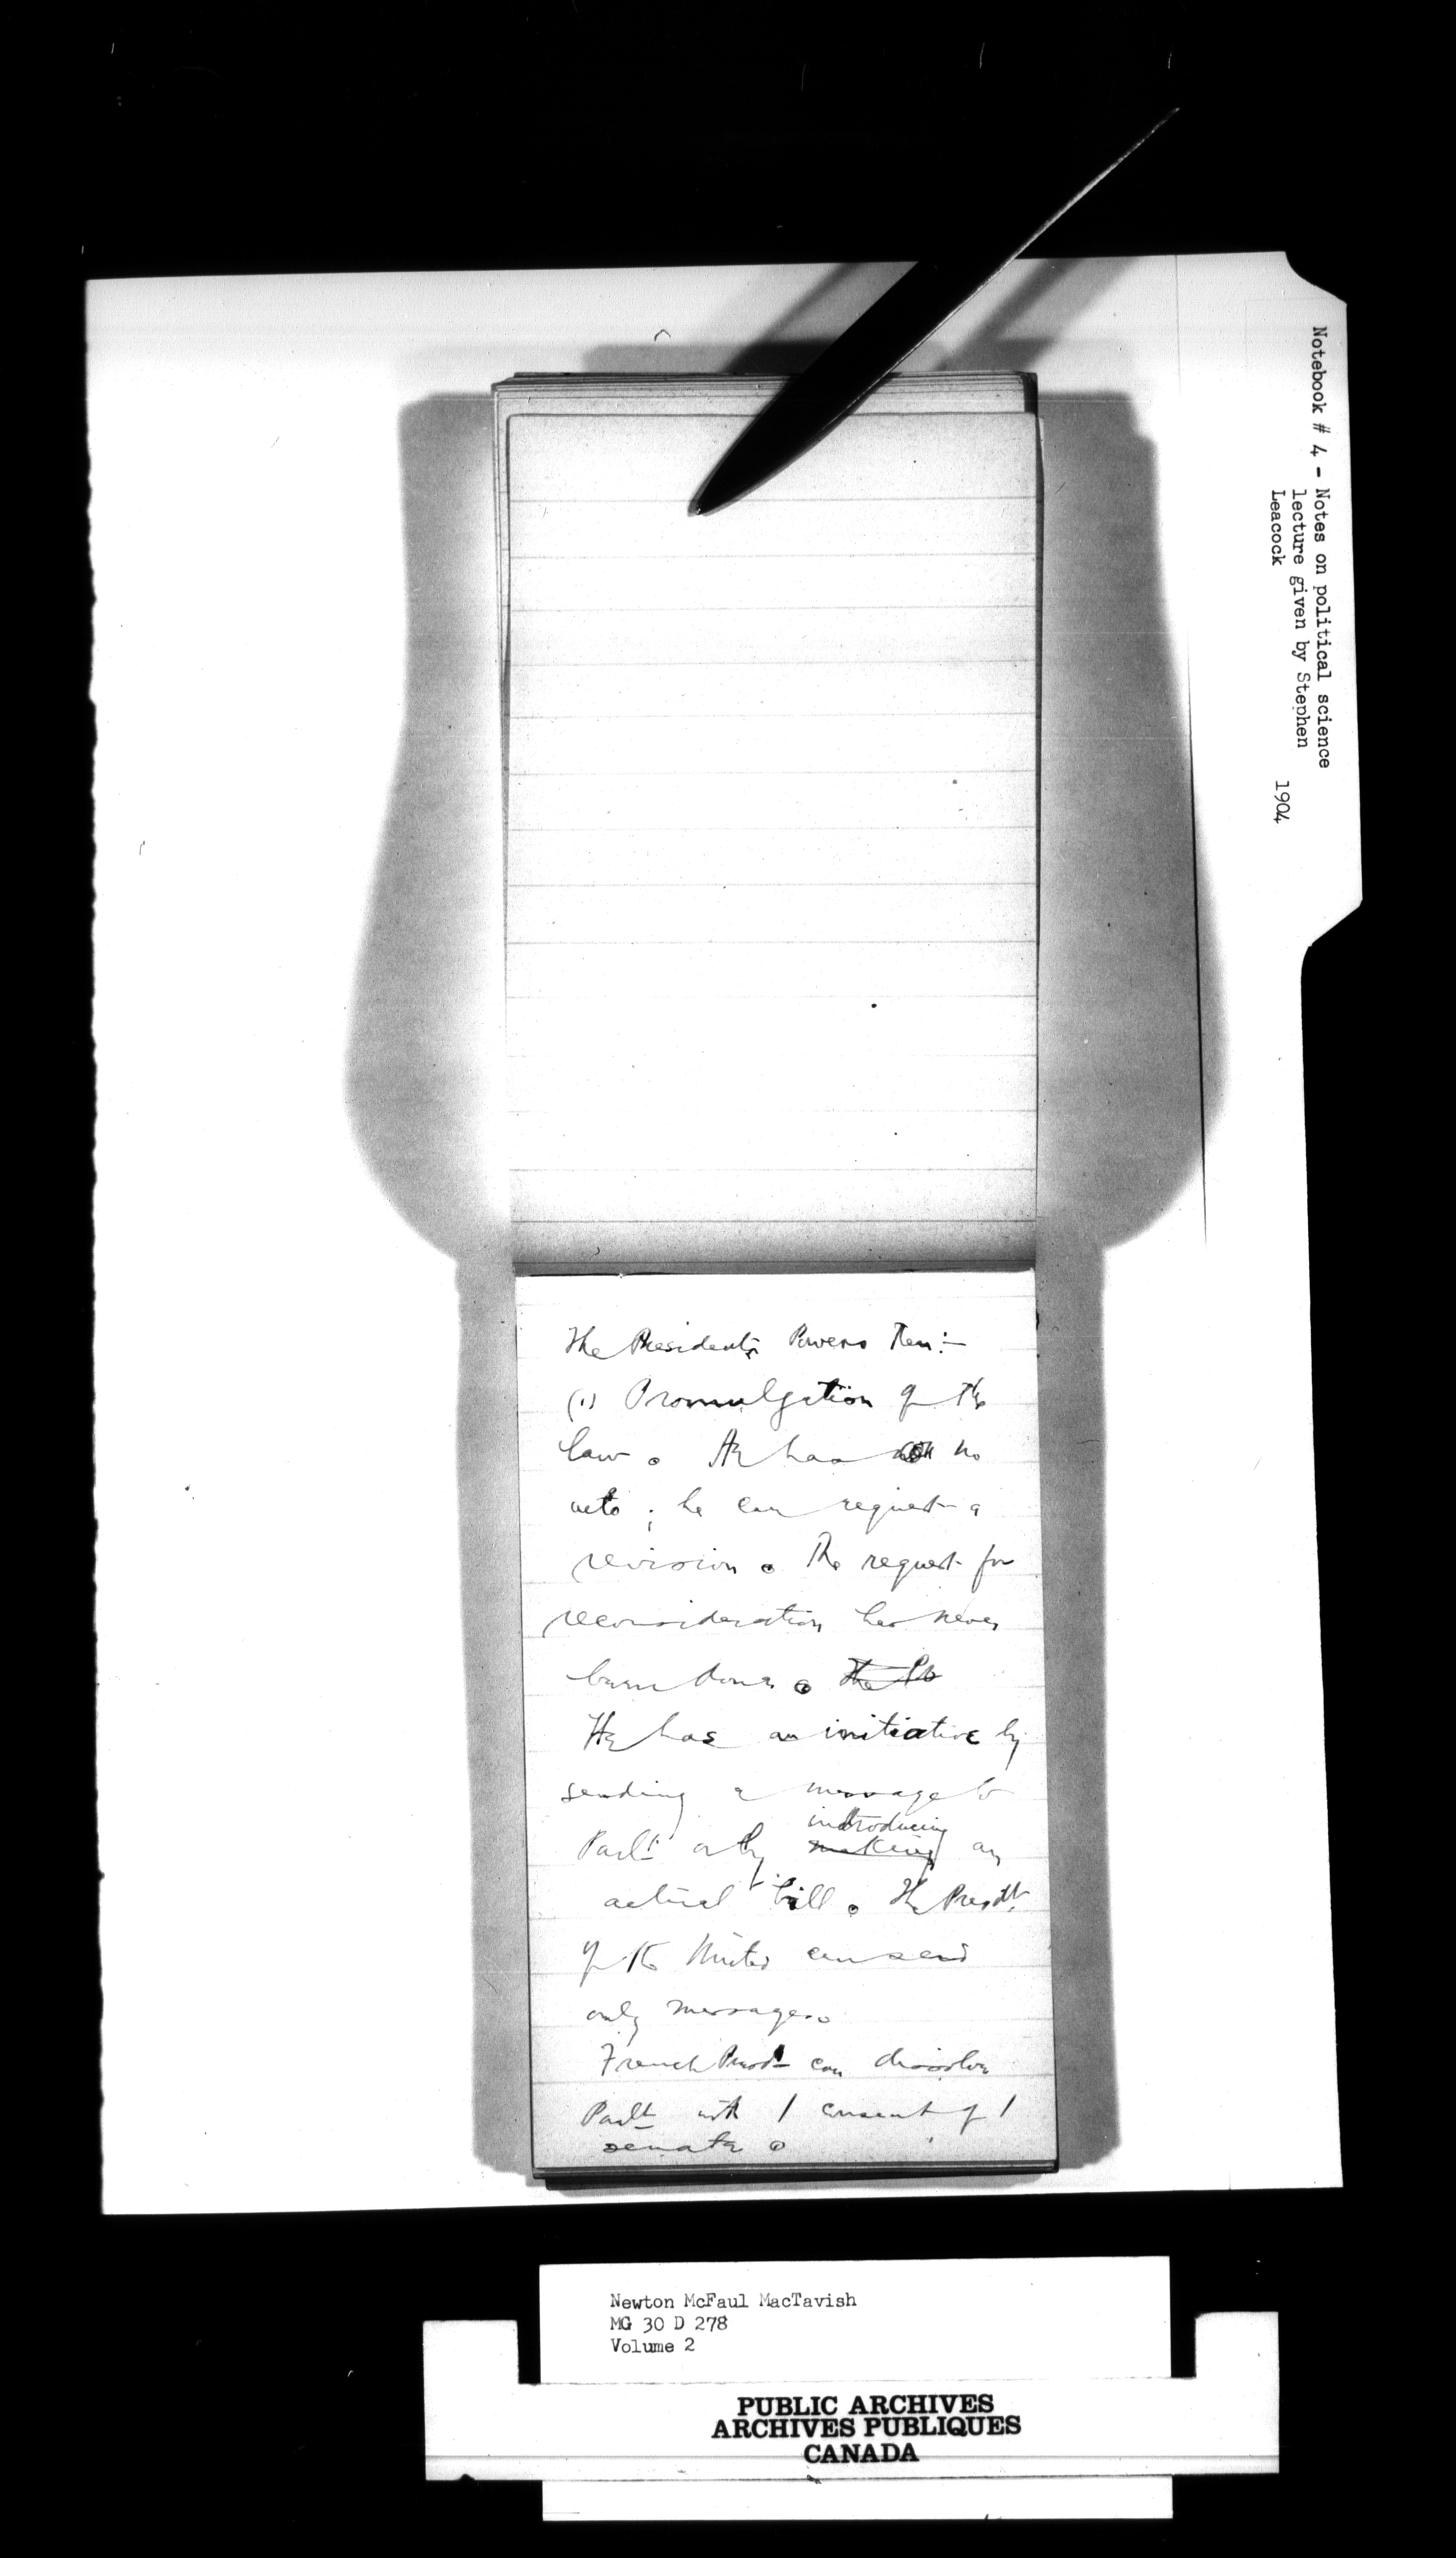 Notebook # 4 - Notes on political science
lecture given by Stephen
Leacock 1904
The Presidents Powers Then:—
(1) Promulgation of the
law. He has no
veto; he can request a
revision. The request for
reconsideration has never
been done. The Ps
He has an initiative by
sending a message to
introducing
Parlt or by making an
actual bill. The Presdt
of the United can send
only messages.
French Presdt can dissolve
Parlt with / consent of /
senate.
Newton McFaul MacTavish
MG 30 D 278
Volume 2
PUBLIC ARCHIVES
ARCHIVES PUBLIQUES
CANADA